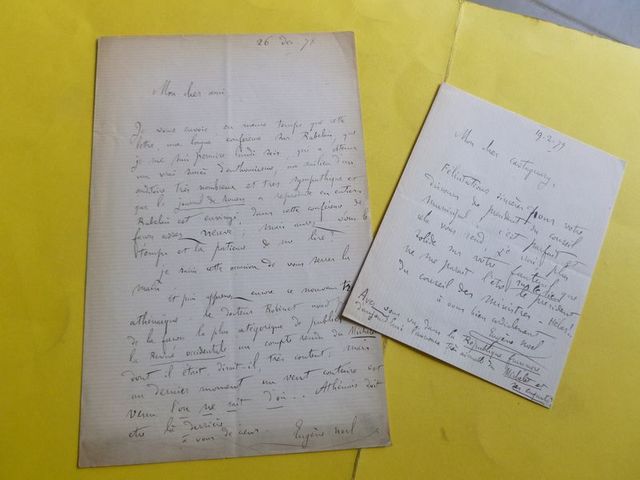 26 Dec 78
Mon cher ami
Je vous envoie en même temps que cette
lettre, une longue conférence sur Rabelais, que
je fis lundi soir, qui a obtenu
un vrai succès d'enthousiasme, au milieu d'un
auditoire très nombreux et très sympathique et
que le journal de Rouen a reproduite en entier
Rabelais est envisagé, dans cette conférence de
façon assez neuve, mais aurez vous le
temps et la patience de me lire ?
je saisis cette occasion de vous serrer la
main.
et puis encore ce nouveau
le docteur Robinet
de la façon la plus catégorique de publier
la Revue occidentale un compte rendu du Michelet
dont il était disait-il, très content : mais
au dernier moment un vent contraire est
venu l'on ne sait d'où... Athénaïs doit
être là derrière
à vous de cœur. Eugène Noel
19-2-79
Mon cher Castagnary,
Félicitations sincères pour votre
discours de président du conseil
municipal : c'est parfait et
cela vous rend plus
solide sur votre fauteuil que
ne me paraît l'être sur le sien le président
du conseil des ministres
à vous bien cordialement
Eugène Noel
Avez vous vu dans la République française
du Michelet et